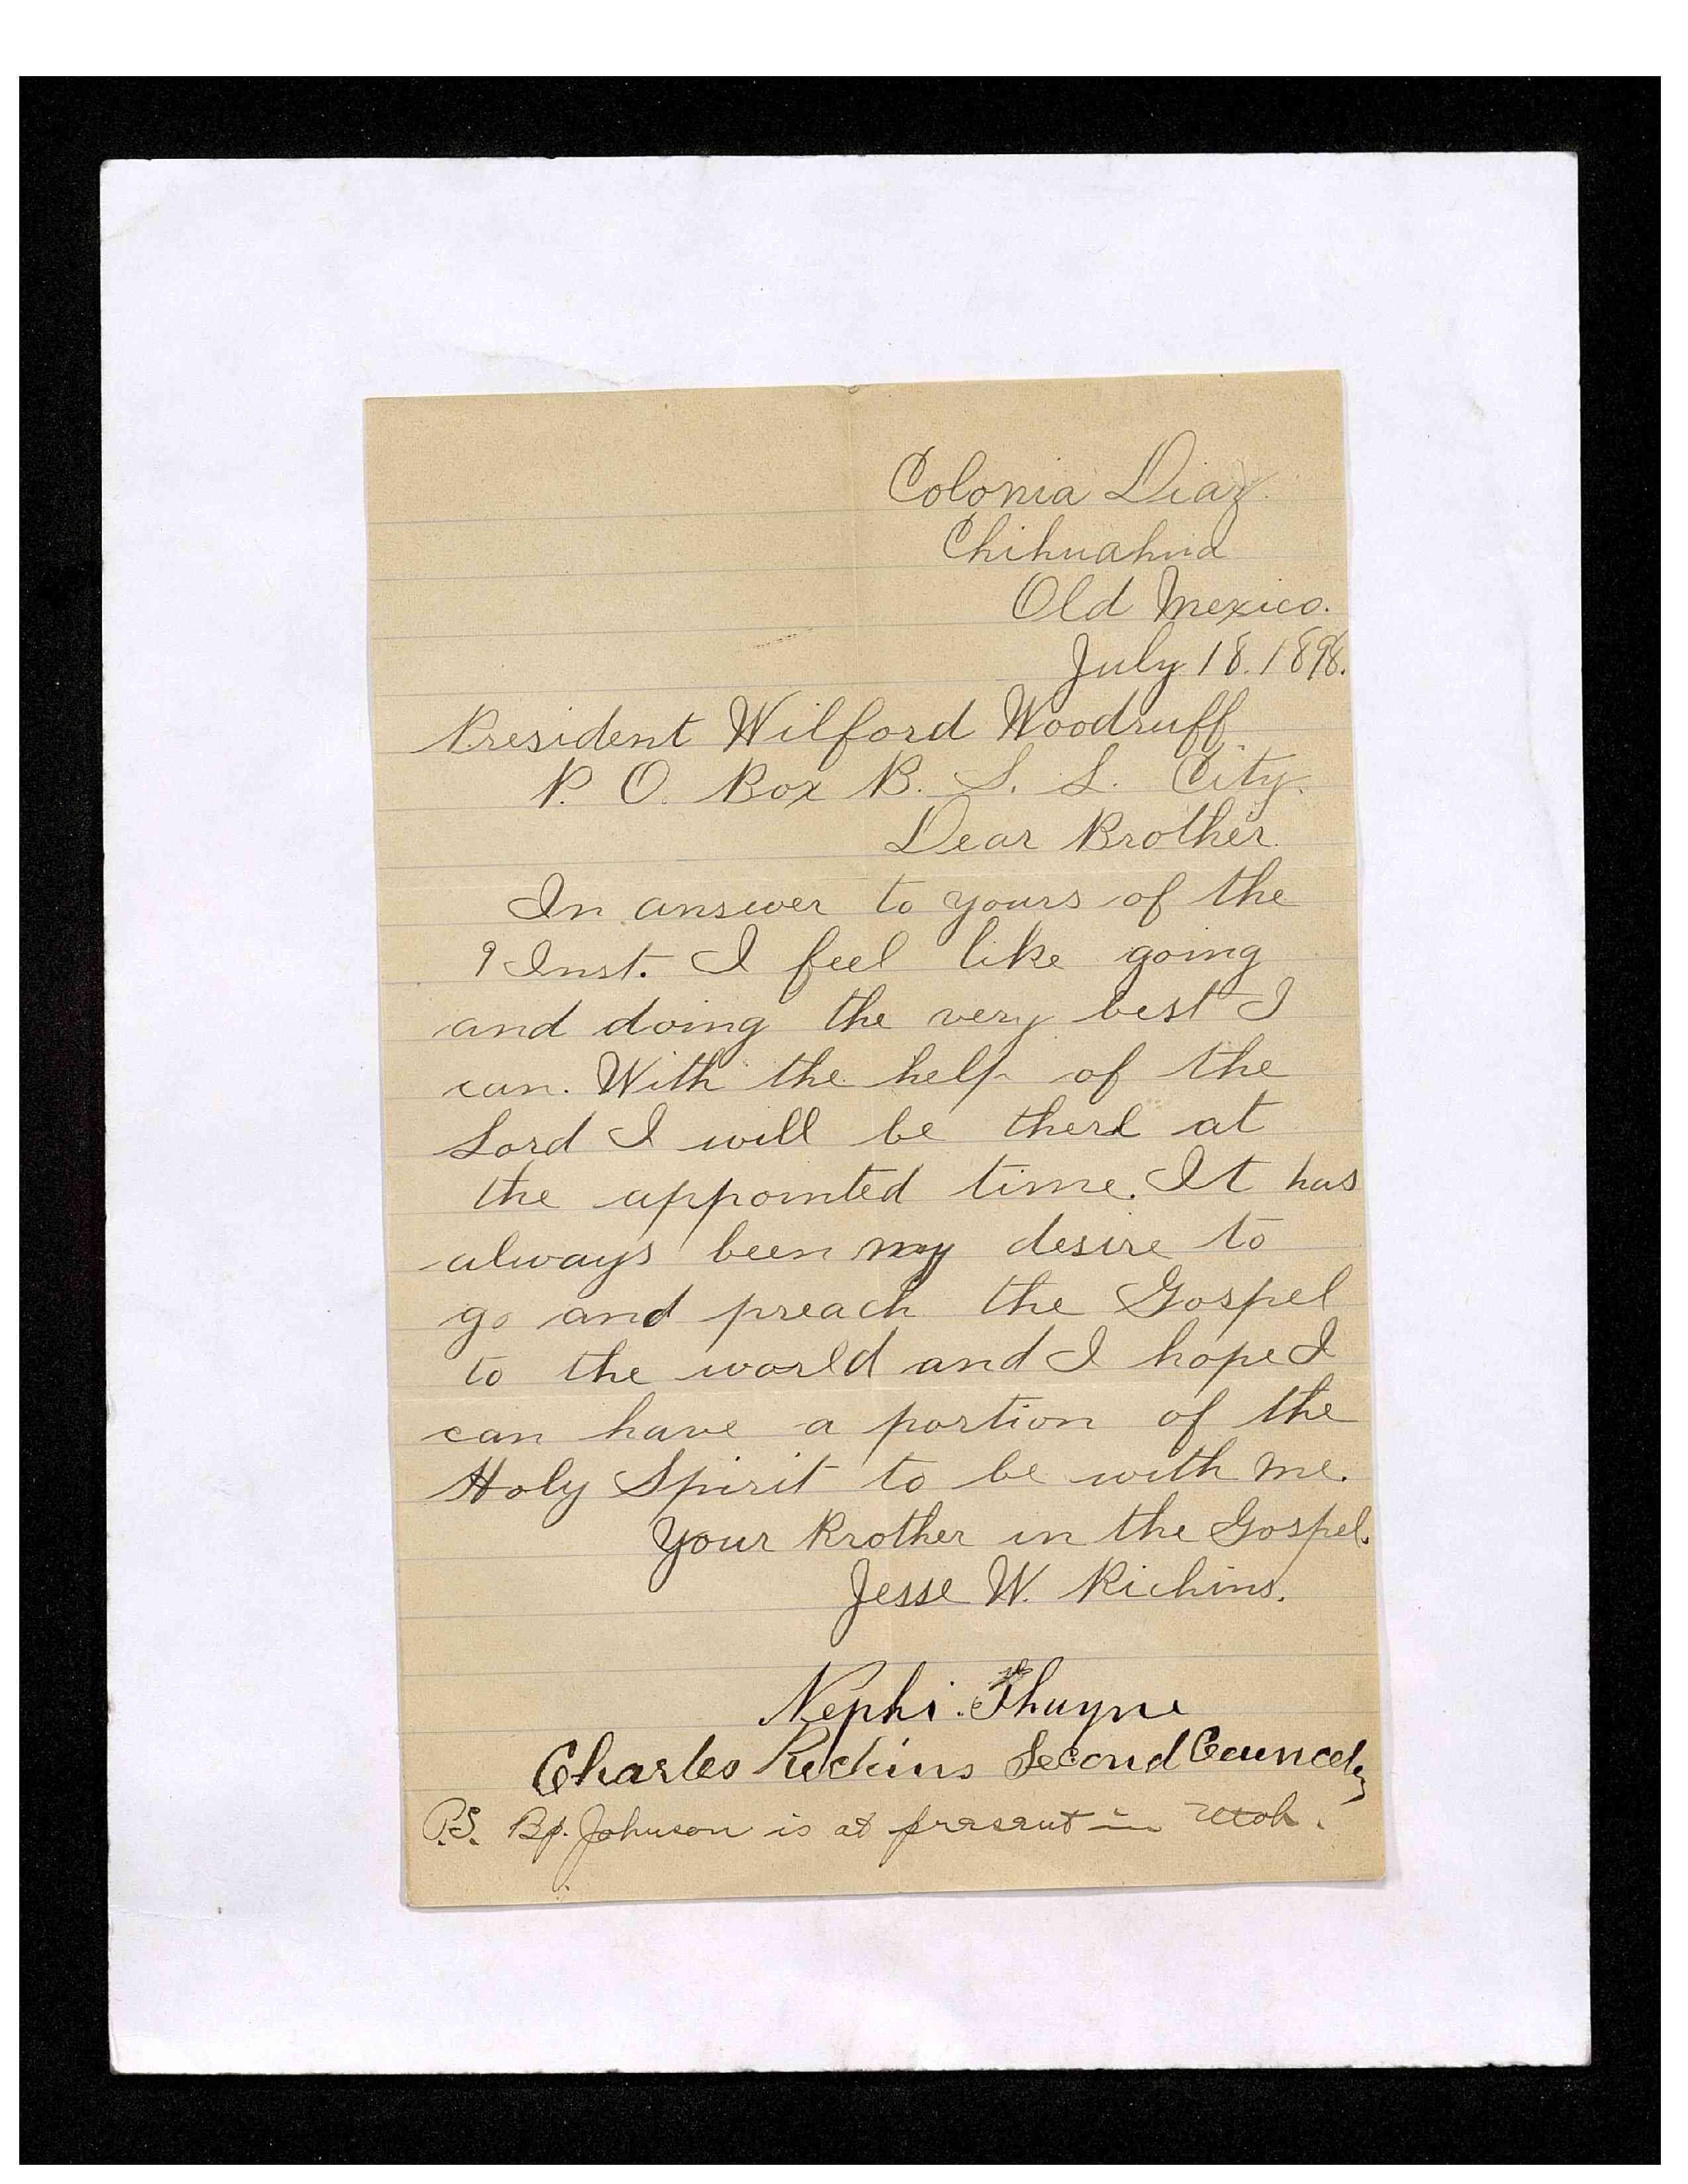 Colonia Diaz.
Chihuahua
Old Mexico.
July 18. 1898.
President Wilford Woodruff.
P. O. Box B. S. L. City.
Dear Brother.
In answer to yours of the
9 Inst. I feel like going
and doing the very best I
can. With the help of the
Lord I will be there at
the appointed time. It has
always been my desire to
go and preach the Gospel
to the world and I hope I
can have a portion of the
Holy Spirit to be with me.
Your Brother in the Gospel.
Jesse W. Richins.
Nephi Thayne
Charles Richins Second
P.S. Bp. Johnson is at present in Utah.